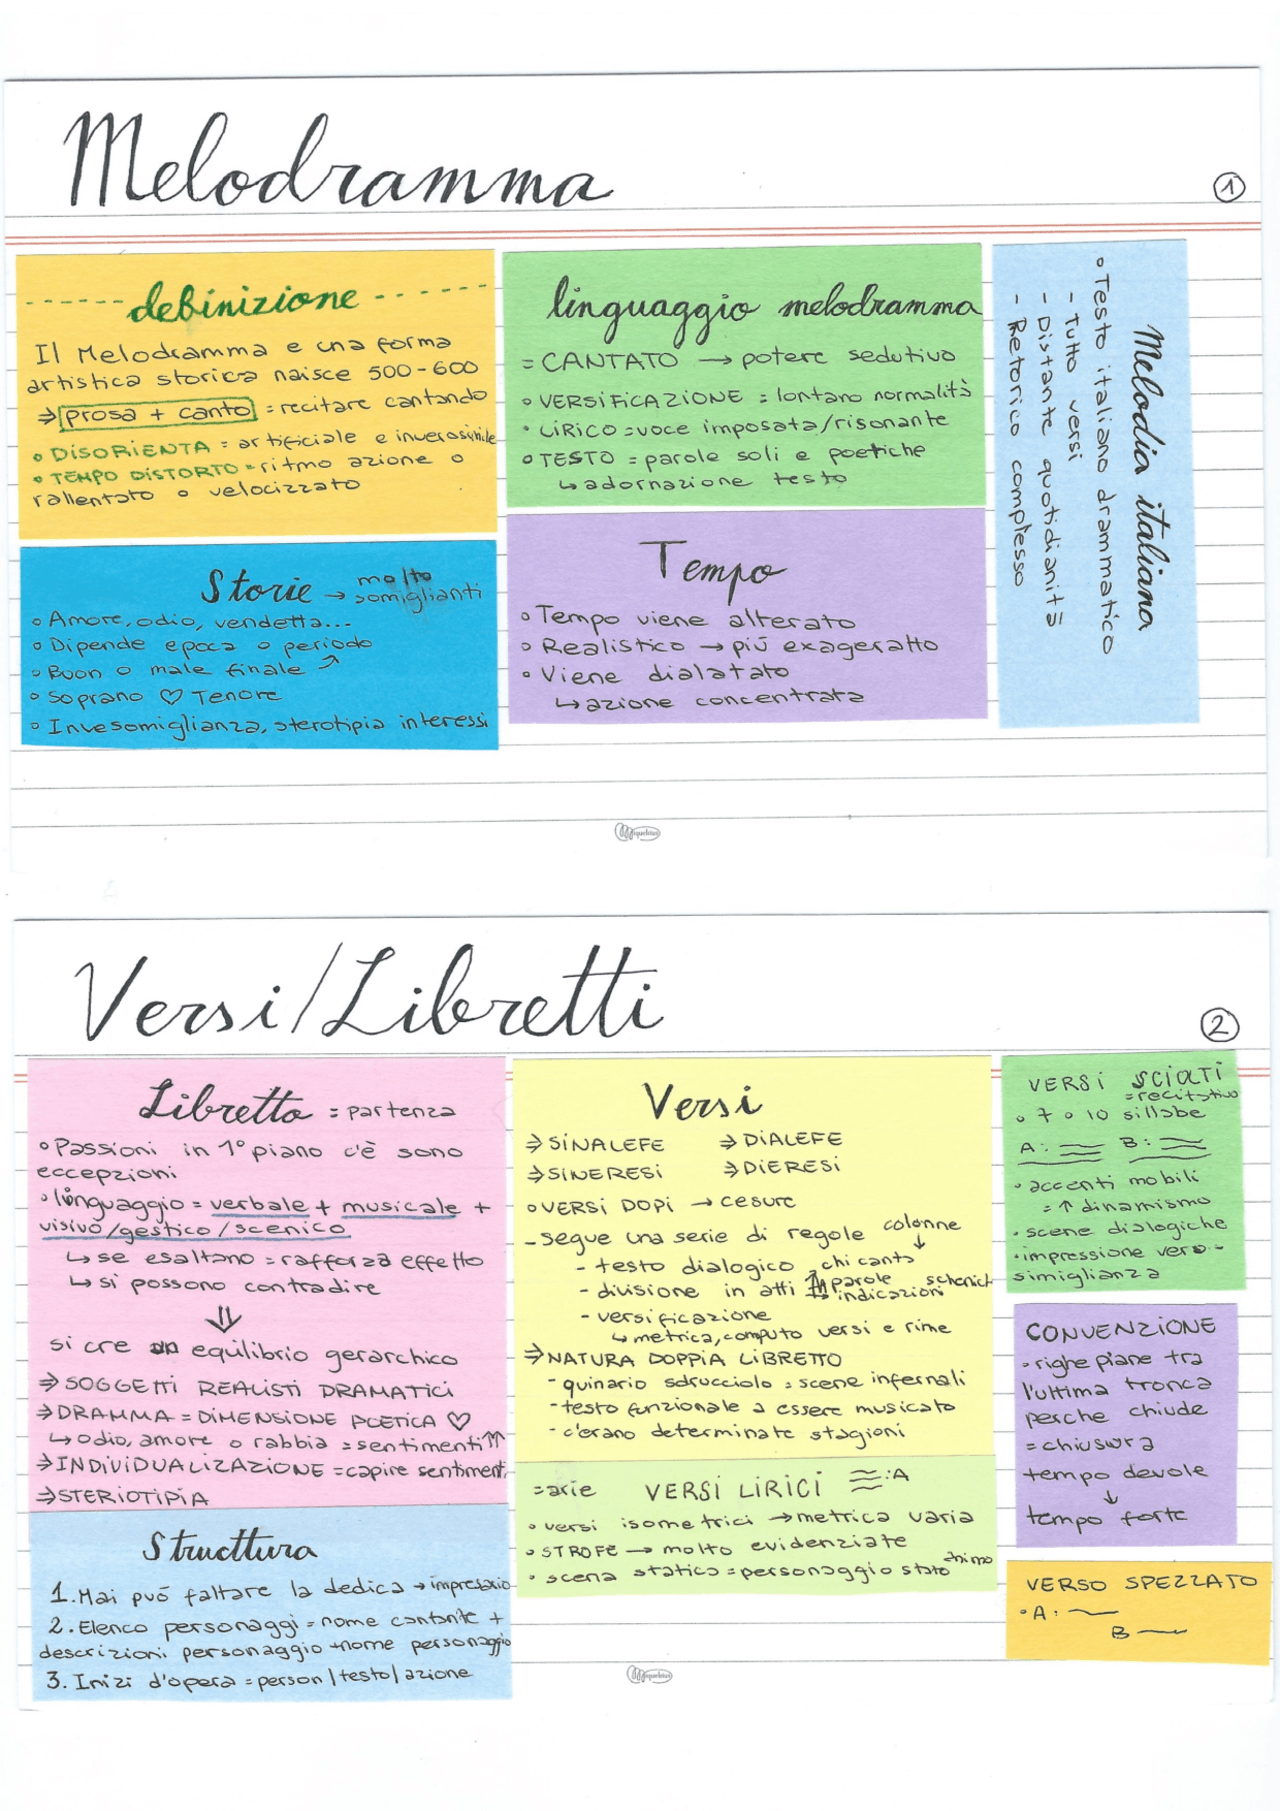 Melodramma
1
definizione
Il Melodramma e una forma
artistica storica naisce 500-600
⇒ prosa + canto = recitare cantando
◦ DISORIENTA = artificiale e inverosimile
◦ TEMPO DISTORTO = ritmo azione o
rallentato o velocizzato
linguaggio melodramma
= CANTATO → potere sedutivo
◦ VERSIFICAZIONE = lontano normalità
• LIRICO = voce imposata/risonante
◦ TESTO = parole soli e poetiche
↳ adornazione testo
Melodia italiana
◦ Testo italiano drammatico
- Tutto versi
- Distante quotidianità
- Retorico complesso
Storie → molto
somiglianti
◦ Amore, odio, vendetta...
◦ Dipende epoca o periodo
◦ Buon o male finale ↗
◦ Soprano ♡ Tenore
◦ Invesomiglianza, sterotipia interessi
Tempo
◦ Tempo viene alterato
◦ Realistico → piú exageratto
◦ Viene dialatato
↳ azione concentrata
Versi/Libretti
2
Libretto = partenza
◦ Passioni in 1° piano c'è sono
eccepzioni
• linguaggio = verbale + musicale +
visivo/gestico/scenico
↳ se esaltano = rafforza effetto
↳ si possono contradire
⇓
si cre un equilibrio gerarchico
⇒ SOGGETTI REALISTI DRAMATICI
⇒ DRAMMA = DIMENSIONE POETICA ♡
↳ odio, amore o rabbia = sentimenti ⇈
⇒ INDIVIDUALIZAZIONE = capire sentimenti
⇒ STERIOTIPIA
Structtura
1. Mai puó faltare la dedica → impresario
2. Elenco personaggi = nome cantante +
descrizioni personaggio + nome personaggio
3. Inizi d'opera = person/testo/azione
Versi
⇒ SINALEFE ⇒ DIALEFE
⇒ SINERESI ⇒ DIERESI
◦ VERSI DOPI → cesure
- segue una serie di regole colonne
- testo dialogico chi canta
- divisione in atti parole
indicazioni
- versificazione
↳ metrica, computo versi e rime
⇒ NATURA DOPPIA LIBRETTO
- quinario sdrucciolo = scene infernali
- testo funzionale a essere musicato
- c'erano determinate stagioni
= arie VERSI LIRICI :A
• versi isometrici → metrica varia
◦ STROFE → molto evidenziate
• scena statica = personaggio stato
animo
VERSI SCIOLTI
= recitativo
◦ 7 o 10 sillabe
A: B:
• accenti mobili
= ↑ dinamismo
• scene dialogiche
• impressione vero-
simiglianza
CONVENZIONE
• righe piane tra
l'ultima tronca
perche chiude
= chiusura
tempo devole
↓
tempo forte
VERSO SPEZZATO
• A:
B